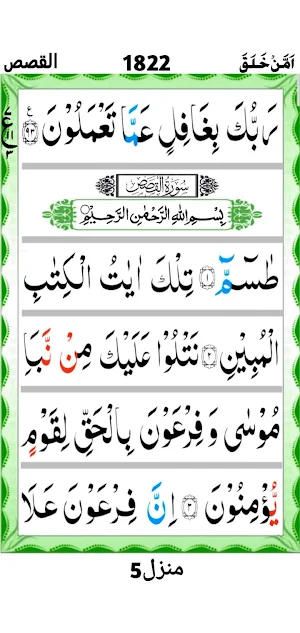 اَمَّنْ خَلَقَ 1822 القصص
رَبُّكَ بِغَافِلٍ عَمَّا تَعْمَلُوْنَ ۝۹۳
سُوْرَةُ الْقَصَصِ
بِسْمِ اللّٰهِ الرَّحْمٰنِ الرَّحِيْمِ
طٰسٓمّٓ ۝۱ تِلْكَ اٰيٰتُ الْكِتٰبِ
الْمُبِيْنِ ۝۲ نَتْلُوْا عَلَيْكَ مِنْ نَّبَاِ
مُوْسٰى وَ فِرْعَوْنَ بِالْحَقِّ لِقَوْمٍ
يُّؤْمِنُوْنَ ۝۳ اِنَّ فِرْعَوْنَ عَلَا
منزل5